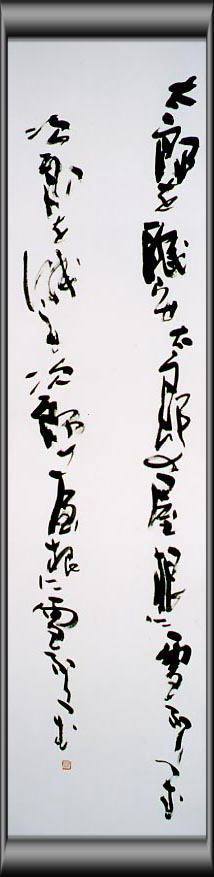 太郎を眠らせ太郎の屋根に雪ふりつむ
次郎を眠らせ次郎の屋根に雪ふりつむ